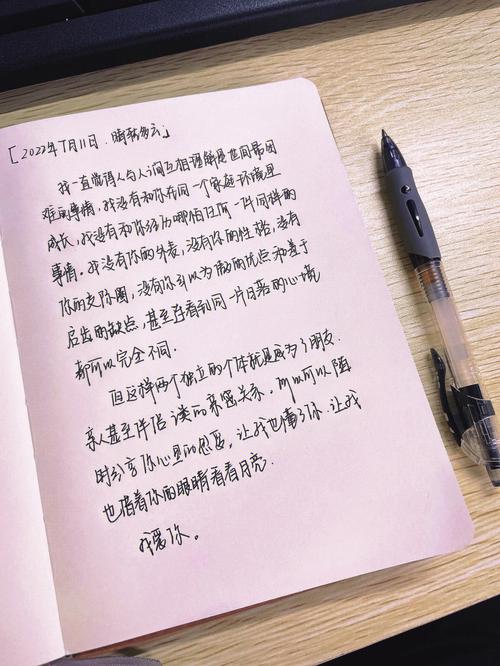 「2022年7月11日.晴转多云」
我一直觉得人与人之间互相理解是世间最困
难的事情，我没有和你在同一个家庭环境里
成长，我没有和你经历哪怕任何一件同样的
事情。我没有你的外表，没有你的性格，没有
你的交际圈，没有你引以为傲的优点和羞于
启齿的缺点，甚至连看到同一片日落的心境
都可以完全不同.
但这样两个独立的个体就是成为了朋友.
亲人甚至伴侣 读的亲密关系，所以可以随
时分享你心里的感受，让我也懂了你.让我
也借着你的眼睛看看月亮.
我爱你。